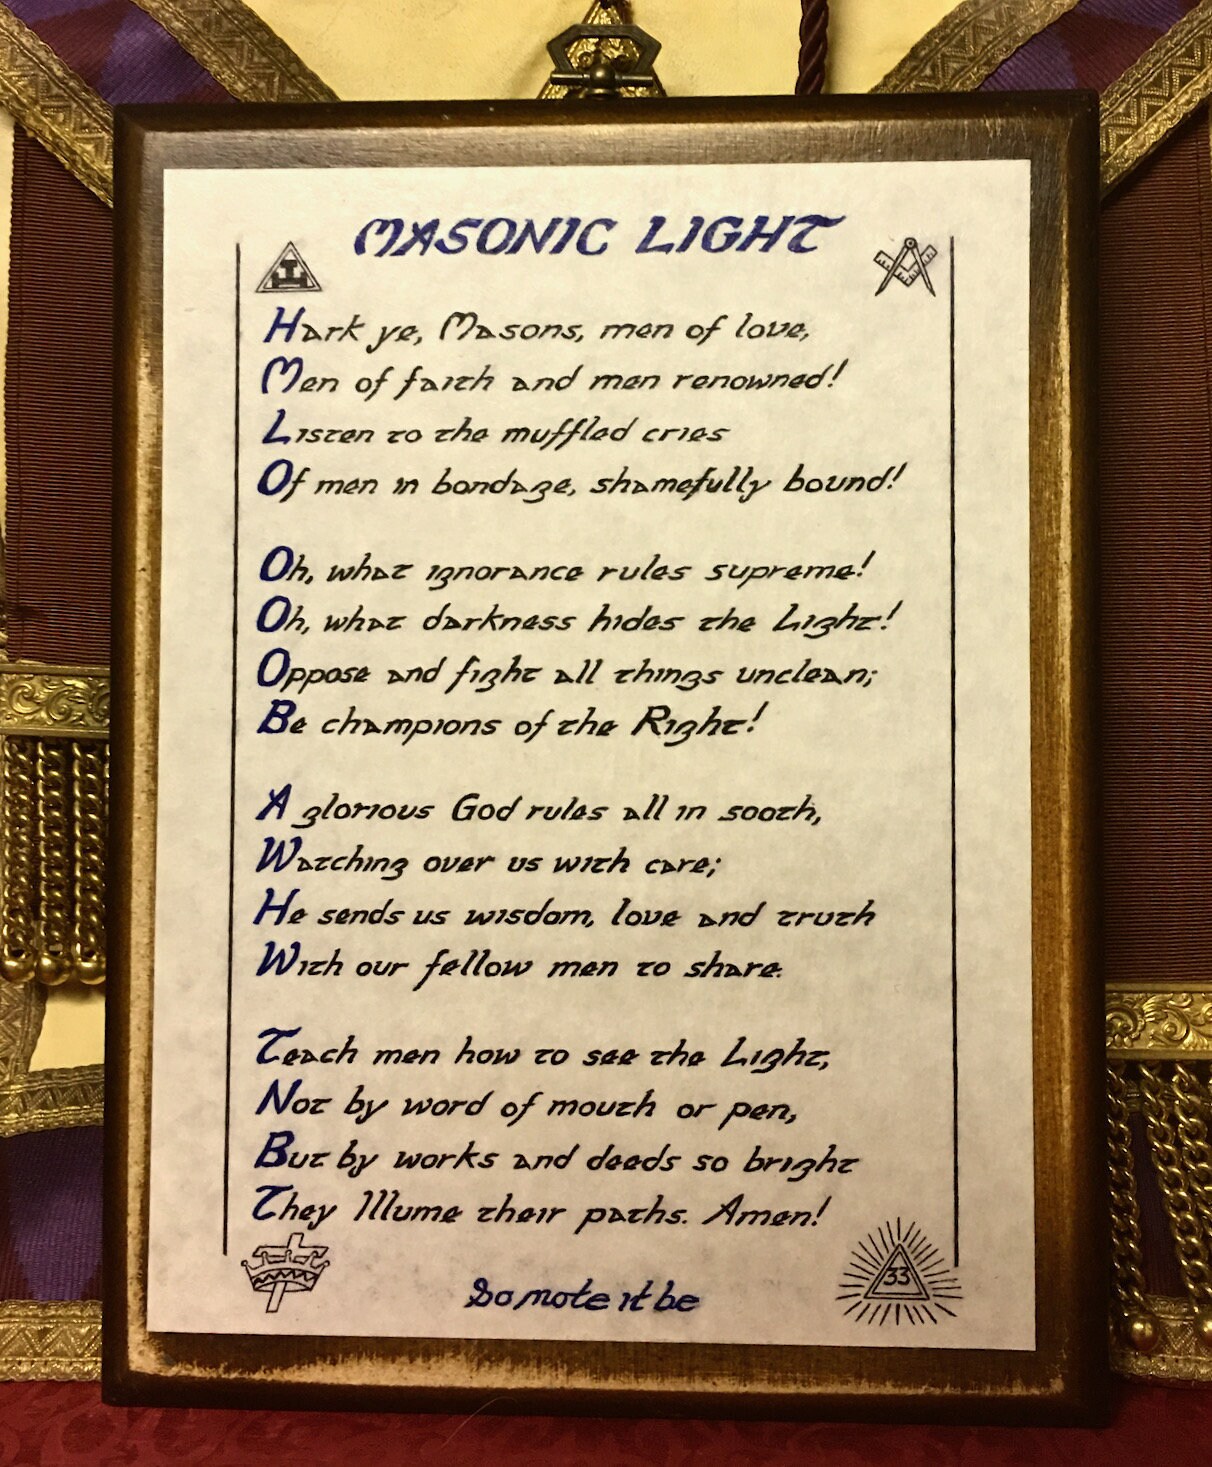 MASONIC LIGHT
Hark ye, Masons, men of love,
Men of faith and men renowned!
Listen to the muffled cries
Of men in bondage, shamefully bound!
Oh, what ignorance rules supreme!
Oh, what darkness hides the Light!
Oppose and fight all things unclean;
Be champions of the Right!
A glorious God rules all in sooth,
Watching over us with care;
He sends us wisdom, love and truth
With our fellow men to share.
Teach men how to see the Light,
Not by word of mouth or pen,
But by works and deeds so bright
They Illume their paths. Amen!
33
So mote it be